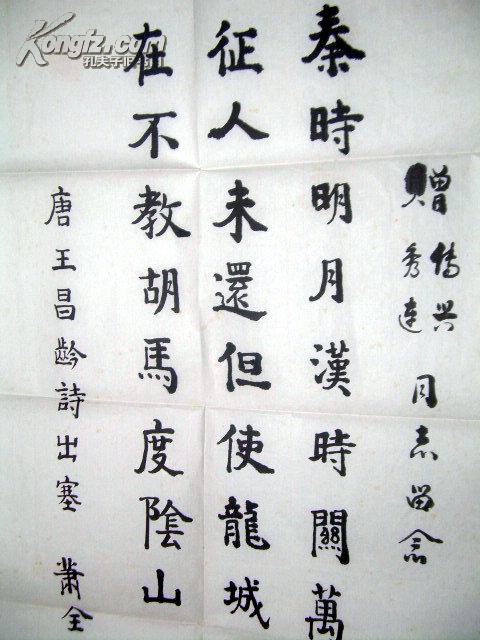 贈
秀连
同志留念
秦時明月漢時關萬
征人未還但使龍城
在不教胡馬度陰山
唐王昌齡詩出塞 蕭全
Kongfz.com
孔夫子旧书网